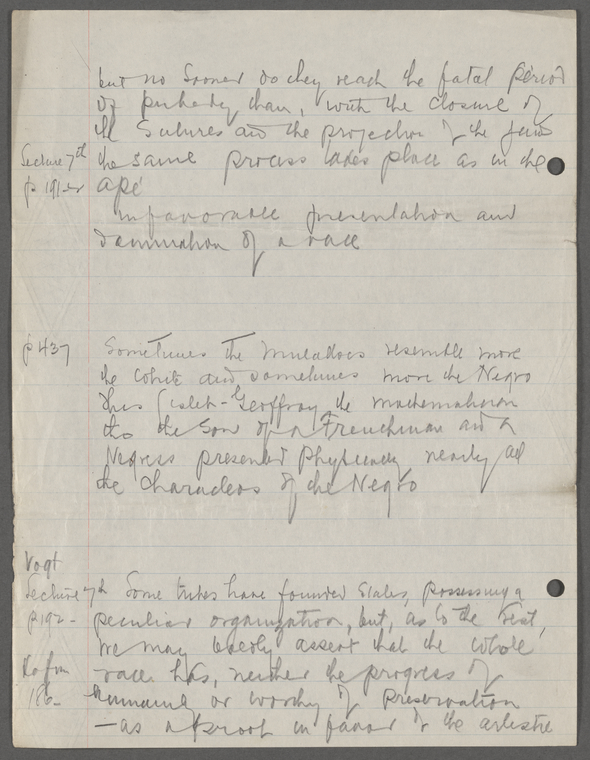 but no sooner do they reach the fatal period
of puberty than, with the closure of
the sutures and the projection of the jaws
Lecture 7th the same process takes place as in the
p 191 ape
unfavorable presentation and
domination of a race
p 437 Sometimes the mulattoes resemble more
the white and sometimes more the Negro
thus Lislet-Geoffroy the mathematician
tho the son of a Frenchman and a
Negress presented physically nearly all
the characters of the Negro
Vogt
Lecture 7th Some tribes have founded states, possessing a
p 192 - peculiar organization, but, as to the rest,
we may boldly assert that the whole
race has, neither the progress of
186- humanity or worthy of preservation
— as a proof in favor of the artistic